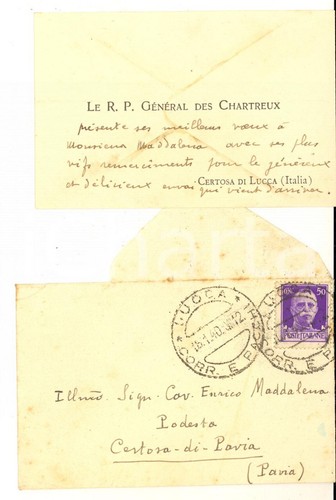 LE R. P. GÉNÉRAL DES CHARTREUX
présente ses meilleurs vœux à
Monsieur Maddalena avec ses plus
vifs remerciments pour le généreux
et délicieux envoi qui vient d'arriver.
CERTOSA DI LUCCA (Italia)
LUCCA
CORR. E P
50
POSTE ITALIANE
Illmo. Sign. Cav. Enrico Maddalena
Podestà
Certosa-di-Pavia
(Pavia)